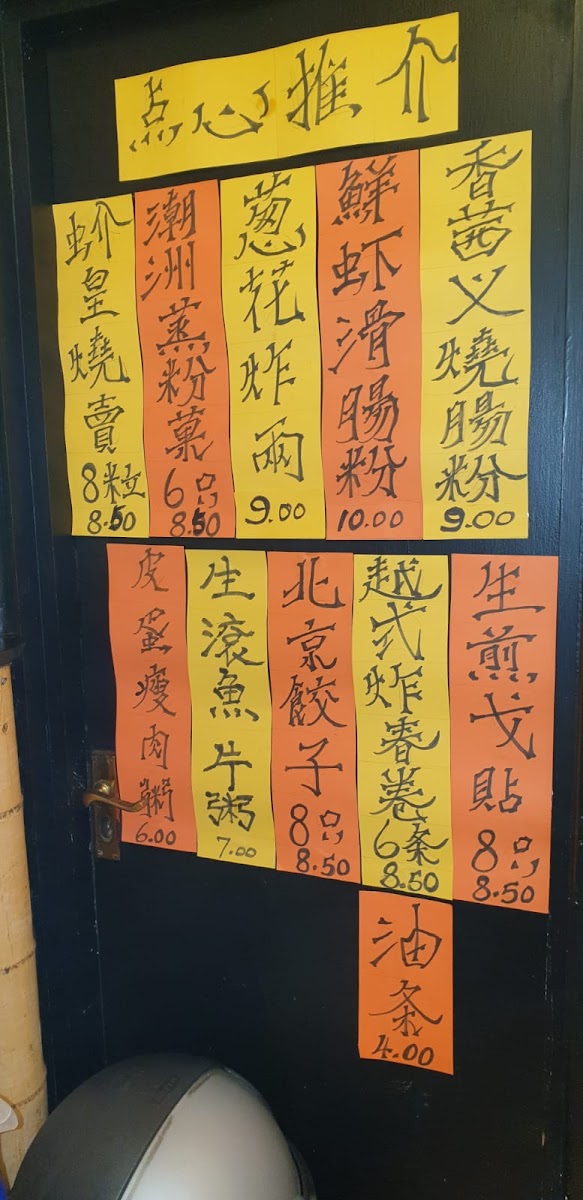 点心推介
蚧皇燒賣
8粒
8.50
潮洲蒸粉菓
6只
8.50
葱花炸兩
9.00
鮮虾滑腸粉
10.00
香茜义燒腸粉
9.00
皮蛋瘦肉粥
6.00
生滾魚片粥
7.00
北京餃子
8只
8.50
越式炸春卷
6条
8.50
生煎戈貼
8只
8.50
油条
4.00